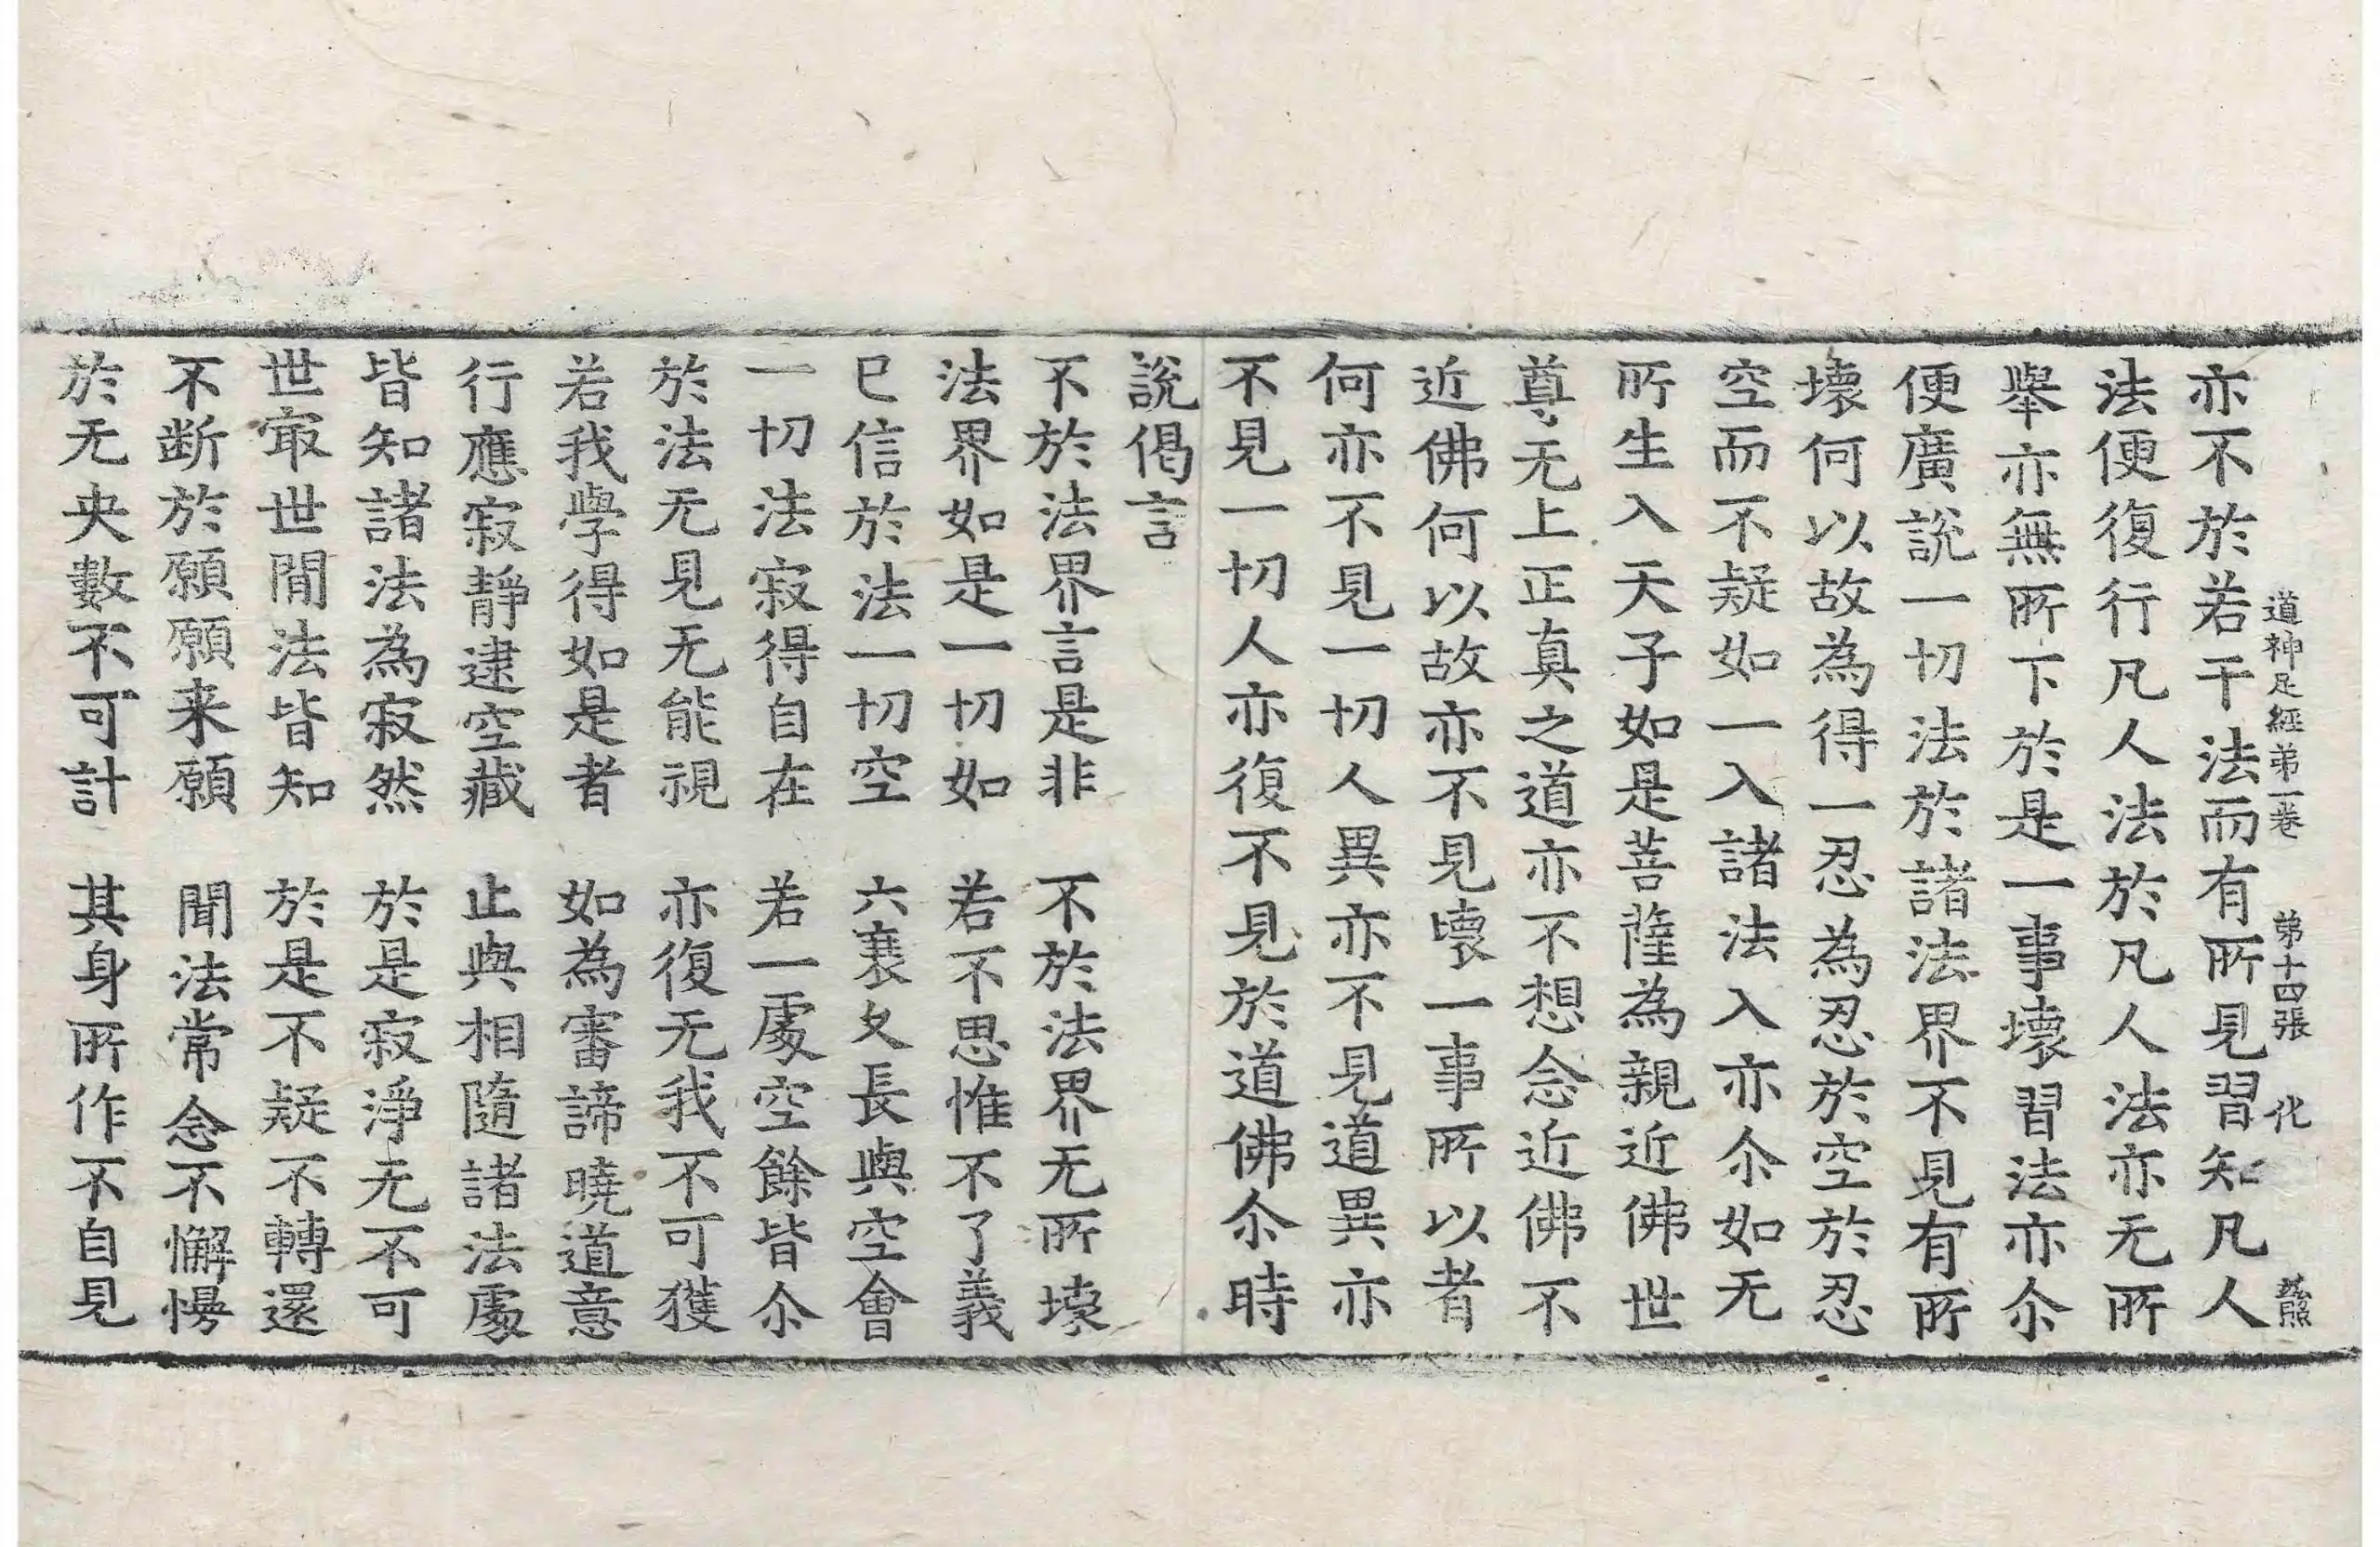 道神足經第一卷 第十四張 化
亦不於若干法而有所見習知凡人
法便復行凡人法於凡人法亦无所
舉亦無所下於是一事壞習法亦尒
便廣說一切法於諸法界不見有所
壞何以故為得一忍為忍於空於忍
空而不疑如一入諸法入亦尒如无
所生入天子如是菩薩為親近佛世
尊无上正真之道亦不想念近佛不
近佛何以故亦不見壞一事所以者
何亦不見一切人異亦不見道異亦
不見一切人亦復不見於道佛尒時
說偈言
不於法界言是非 不於法界无所壞
法界如是一切如 若不思惟不了義
已信於法一切空 六衰久長與空會
一切法寂得自在 若一處空餘皆尒
於法无見无能視 亦復无我不可獲
若我學得如是者 如為審諦曉道意
行應寂靜逮空藏 止與相隨諸法處
皆知諸法為寂然 於是寂淨无不可
世冣世間法皆知 於是不疑不轉還
不断於願願来願 聞法常念不懈慢
於无央數不可計 其身所作不自見